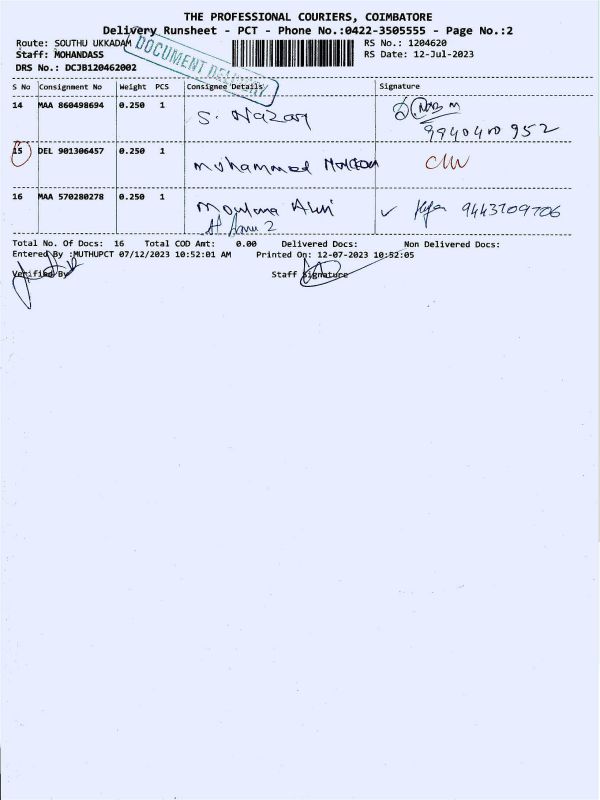 THE PROFESSIONAL COURIERS, COIMBATORE
Delivery Runsheet - PCT - Phone No.:0422-3505555 - Page No.:2
Route: SOUTHU UKKADAM
RS No.: 1204620
Staff: MOHANDASS
RS Date: 12-Jul-2023
DRS No.: DCJB120462002
DOCUMENT DELIVERY
S No Consignment No Weight PCS Consignee Details Signature
14 MAA 860498694 0.250 1 S. Nazar
9940410952
15 DEL 901306457 0.250 1 Muhammed
16 MAA 570280278 0.250 1 Moulana 9443709706
Total No. Of Docs: 16 Total COD Amt: 0.00 Delivered Docs: Non Delivered Docs:
Entered By :MUTHUPCT 07/12/2023 10:52:01 AM Printed On: 12-07-2023 10:52:05
Verified By Staff Signature